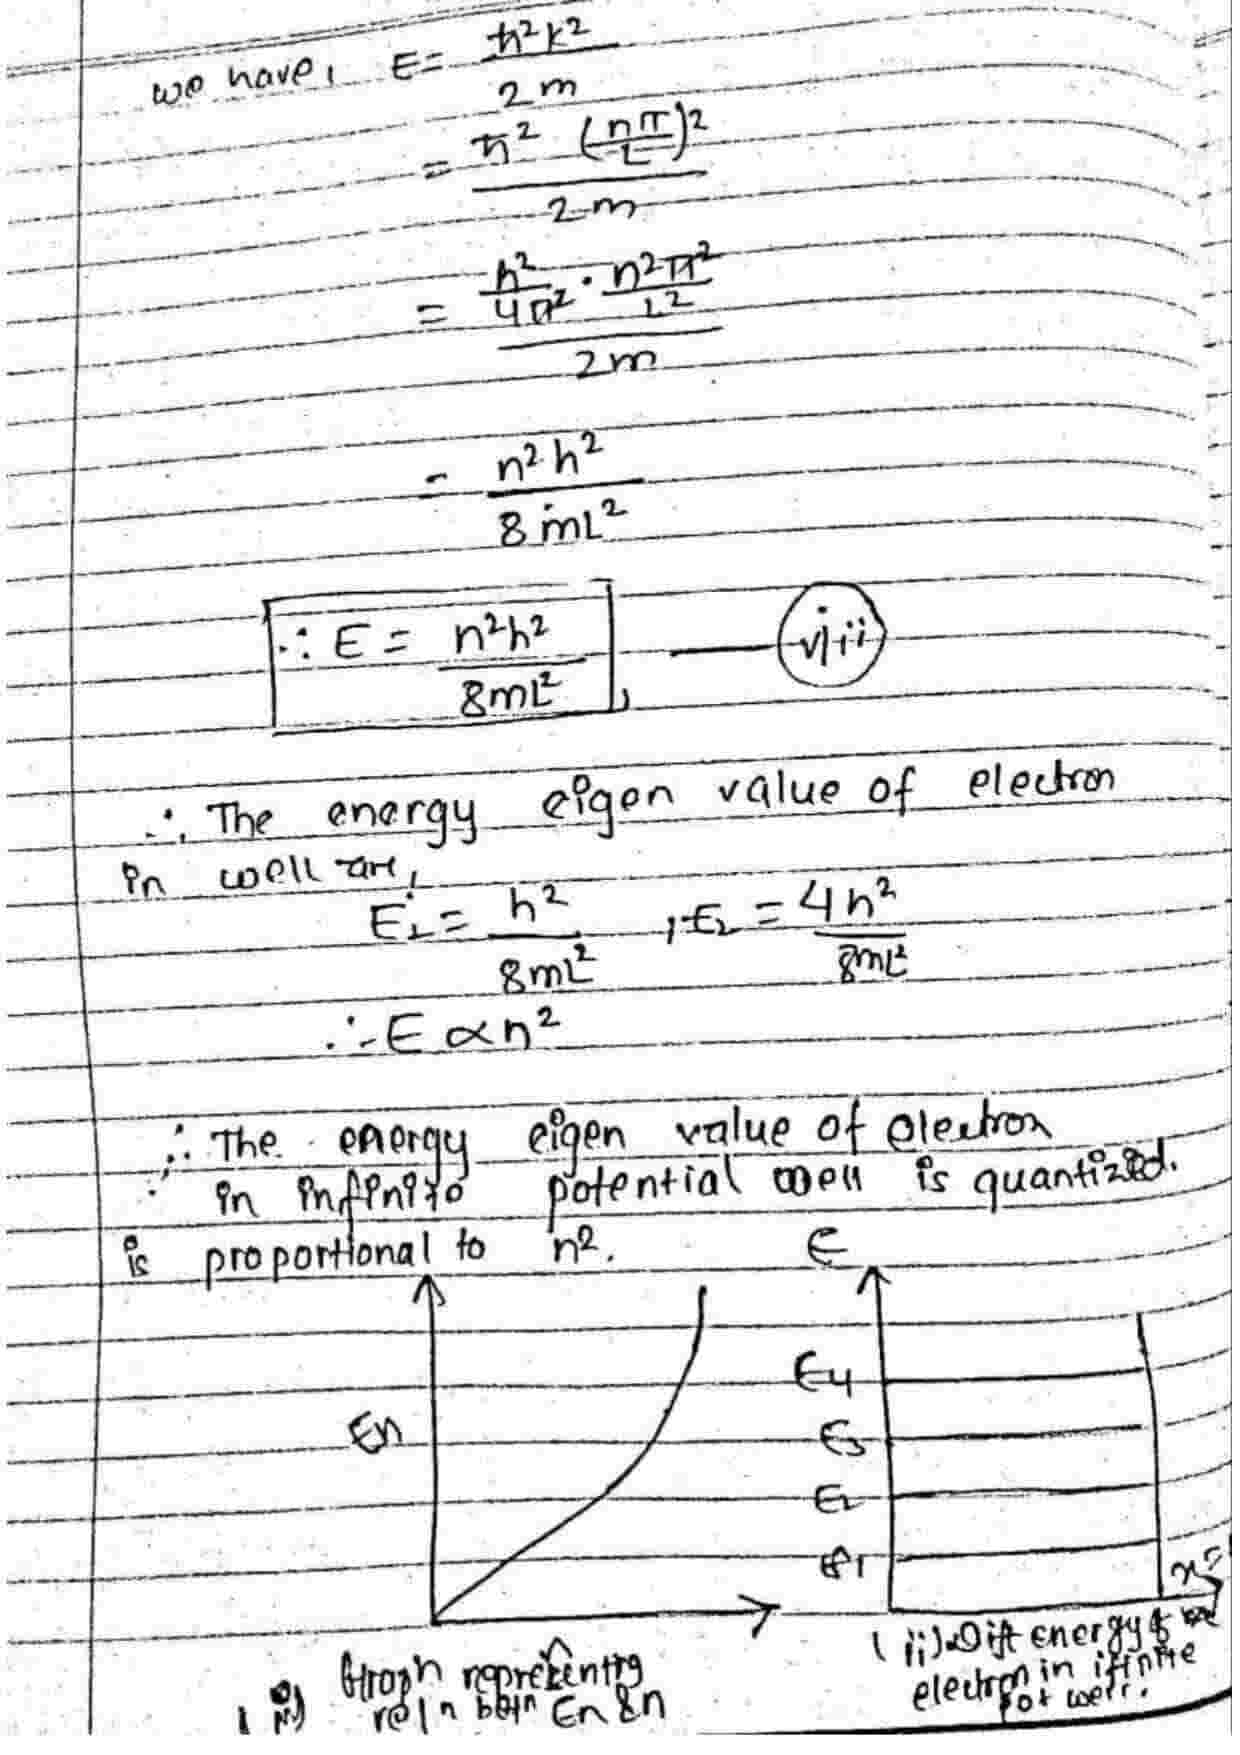 we have, E = ħ²k² / 2m
= ħ² (nπ/L)² / 2m
= h²/4π² · n²π²/L² / 2m
= n²h² / 8mL²
∴ E = n²h² / 8mL² — viii
∴ The energy eigen value of electron
in well are,
E₁ = h² / 8mL² , E₂ = 4h² / 8mL²
∴ E ∝ n²
∴ The energy eigen value of electron
in infinite potential well is quantized.
is proportional to n².
En
E
E4
E3
E2
E1
x=
Graph representing
reln betn En & n
(ii) Diff energy of
electron in ifinite
pot well.